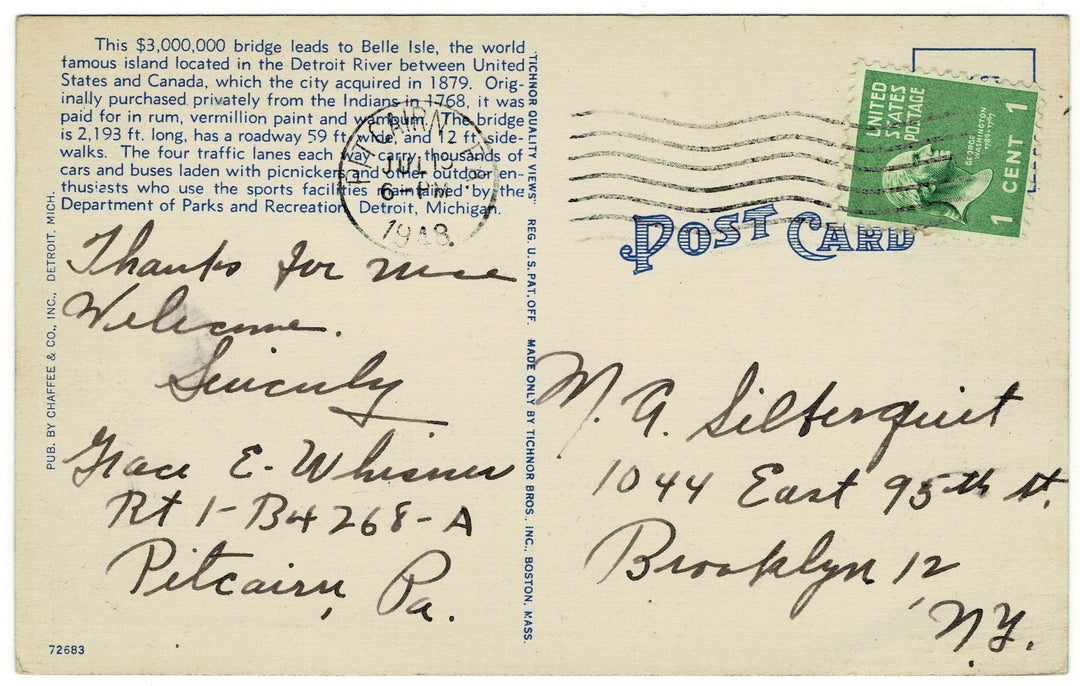 This $3,000,000 bridge leads to Belle Isle, the world
famous island located in the Detroit River between United
States and Canada, which the city acquired in 1879. Orig-
inally purchased privately from the Indians in 1768, it was
paid for in rum, vermillion paint and wampum. The bridge
is 2,193 ft. long, has a roadway 59 ft. wide, and 12 ft. side-
walks. The four traffic lanes each way carry thousands of
cars and buses laden with picnickers and other outdoor en-
thusiasts who use the sports facilities maintained by the
Department of Parks and Recreation, Detroit, Michigan.
PITCAIRN, PA.
JUL
6-PM
1948
Thanks for
Welcome.
Sincerly
Grace E. Whisner
Rt 1-B4268-A
Pitcairn, Pa.
72683
PUB. BY CHAFFEE & CO., INC., DETROIT, MICH.
"TICHNOR QUALITY VIEWS" REG. U.S. PAT. OFF. MADE ONLY BY TICHNOR BROS., INC., BOSTON, MASS.
UNITED
STATES
POSTAGE
GEORGE
WASHINGTON
1789-1797
1 CENT 1
POST CARD
M. A. Silberquit
1044 East 95th St.
Brooklyn 12
N.Y.